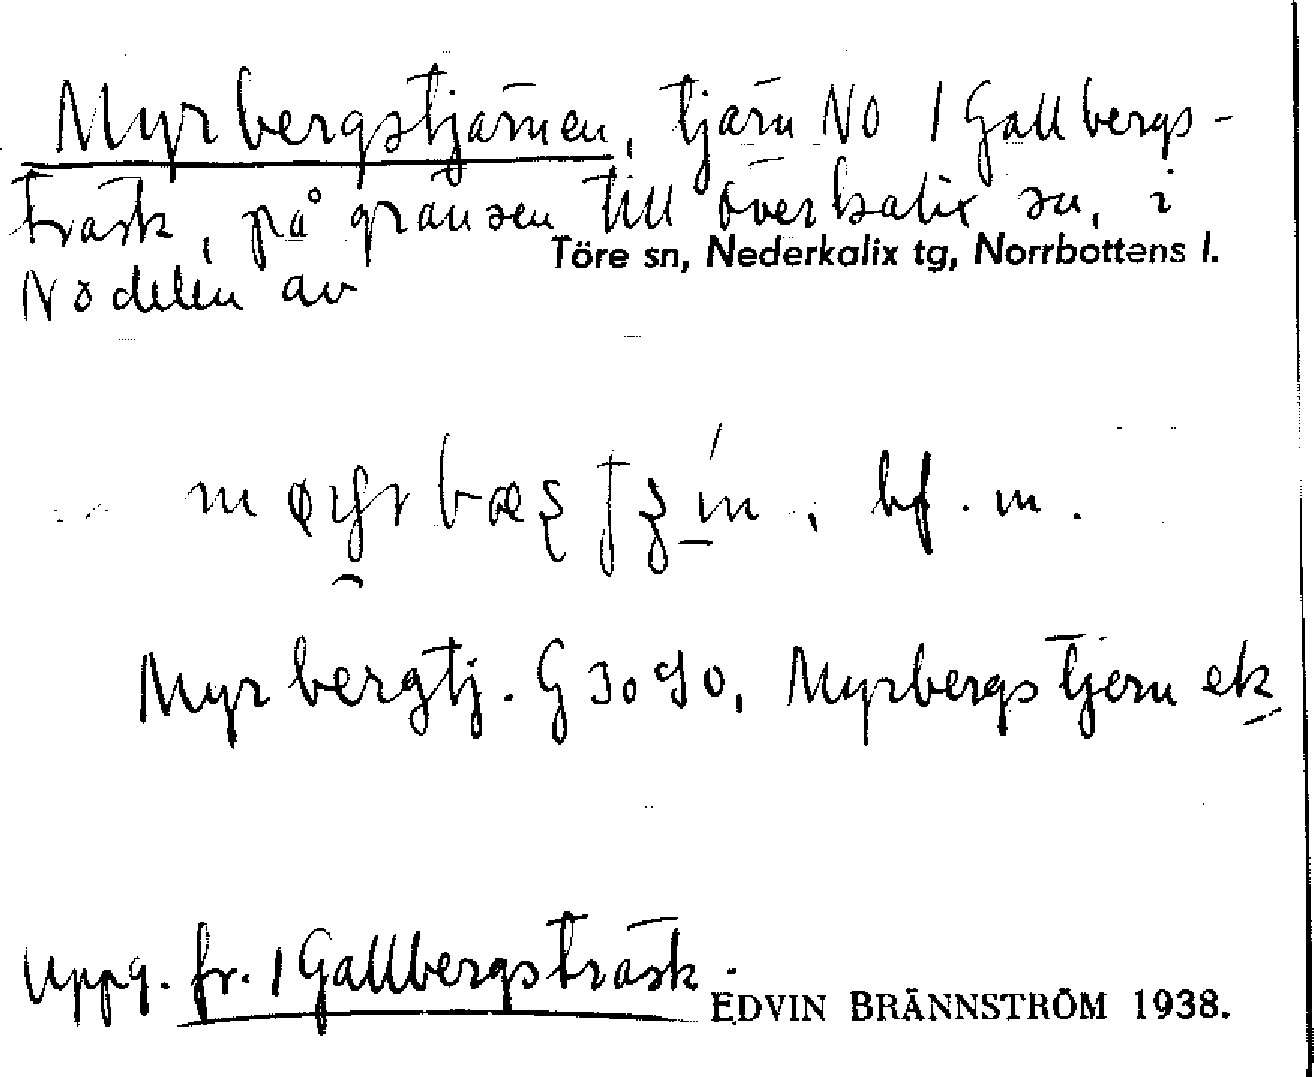 Myrbergstjärnen, tjärn NO 1 Gallbergs-
träsk, på gränsen till Överkalix sn, i
Töre sn, Nederkalix tg, Norrbottens l.
NÖ delen av
bf. m.
Myrbergtj. G 3090, Myrbergstjern ek
Uppg. fr. 1 Gallbergsträsk.
EDVIN BRÄNNSTRÖM 1938.